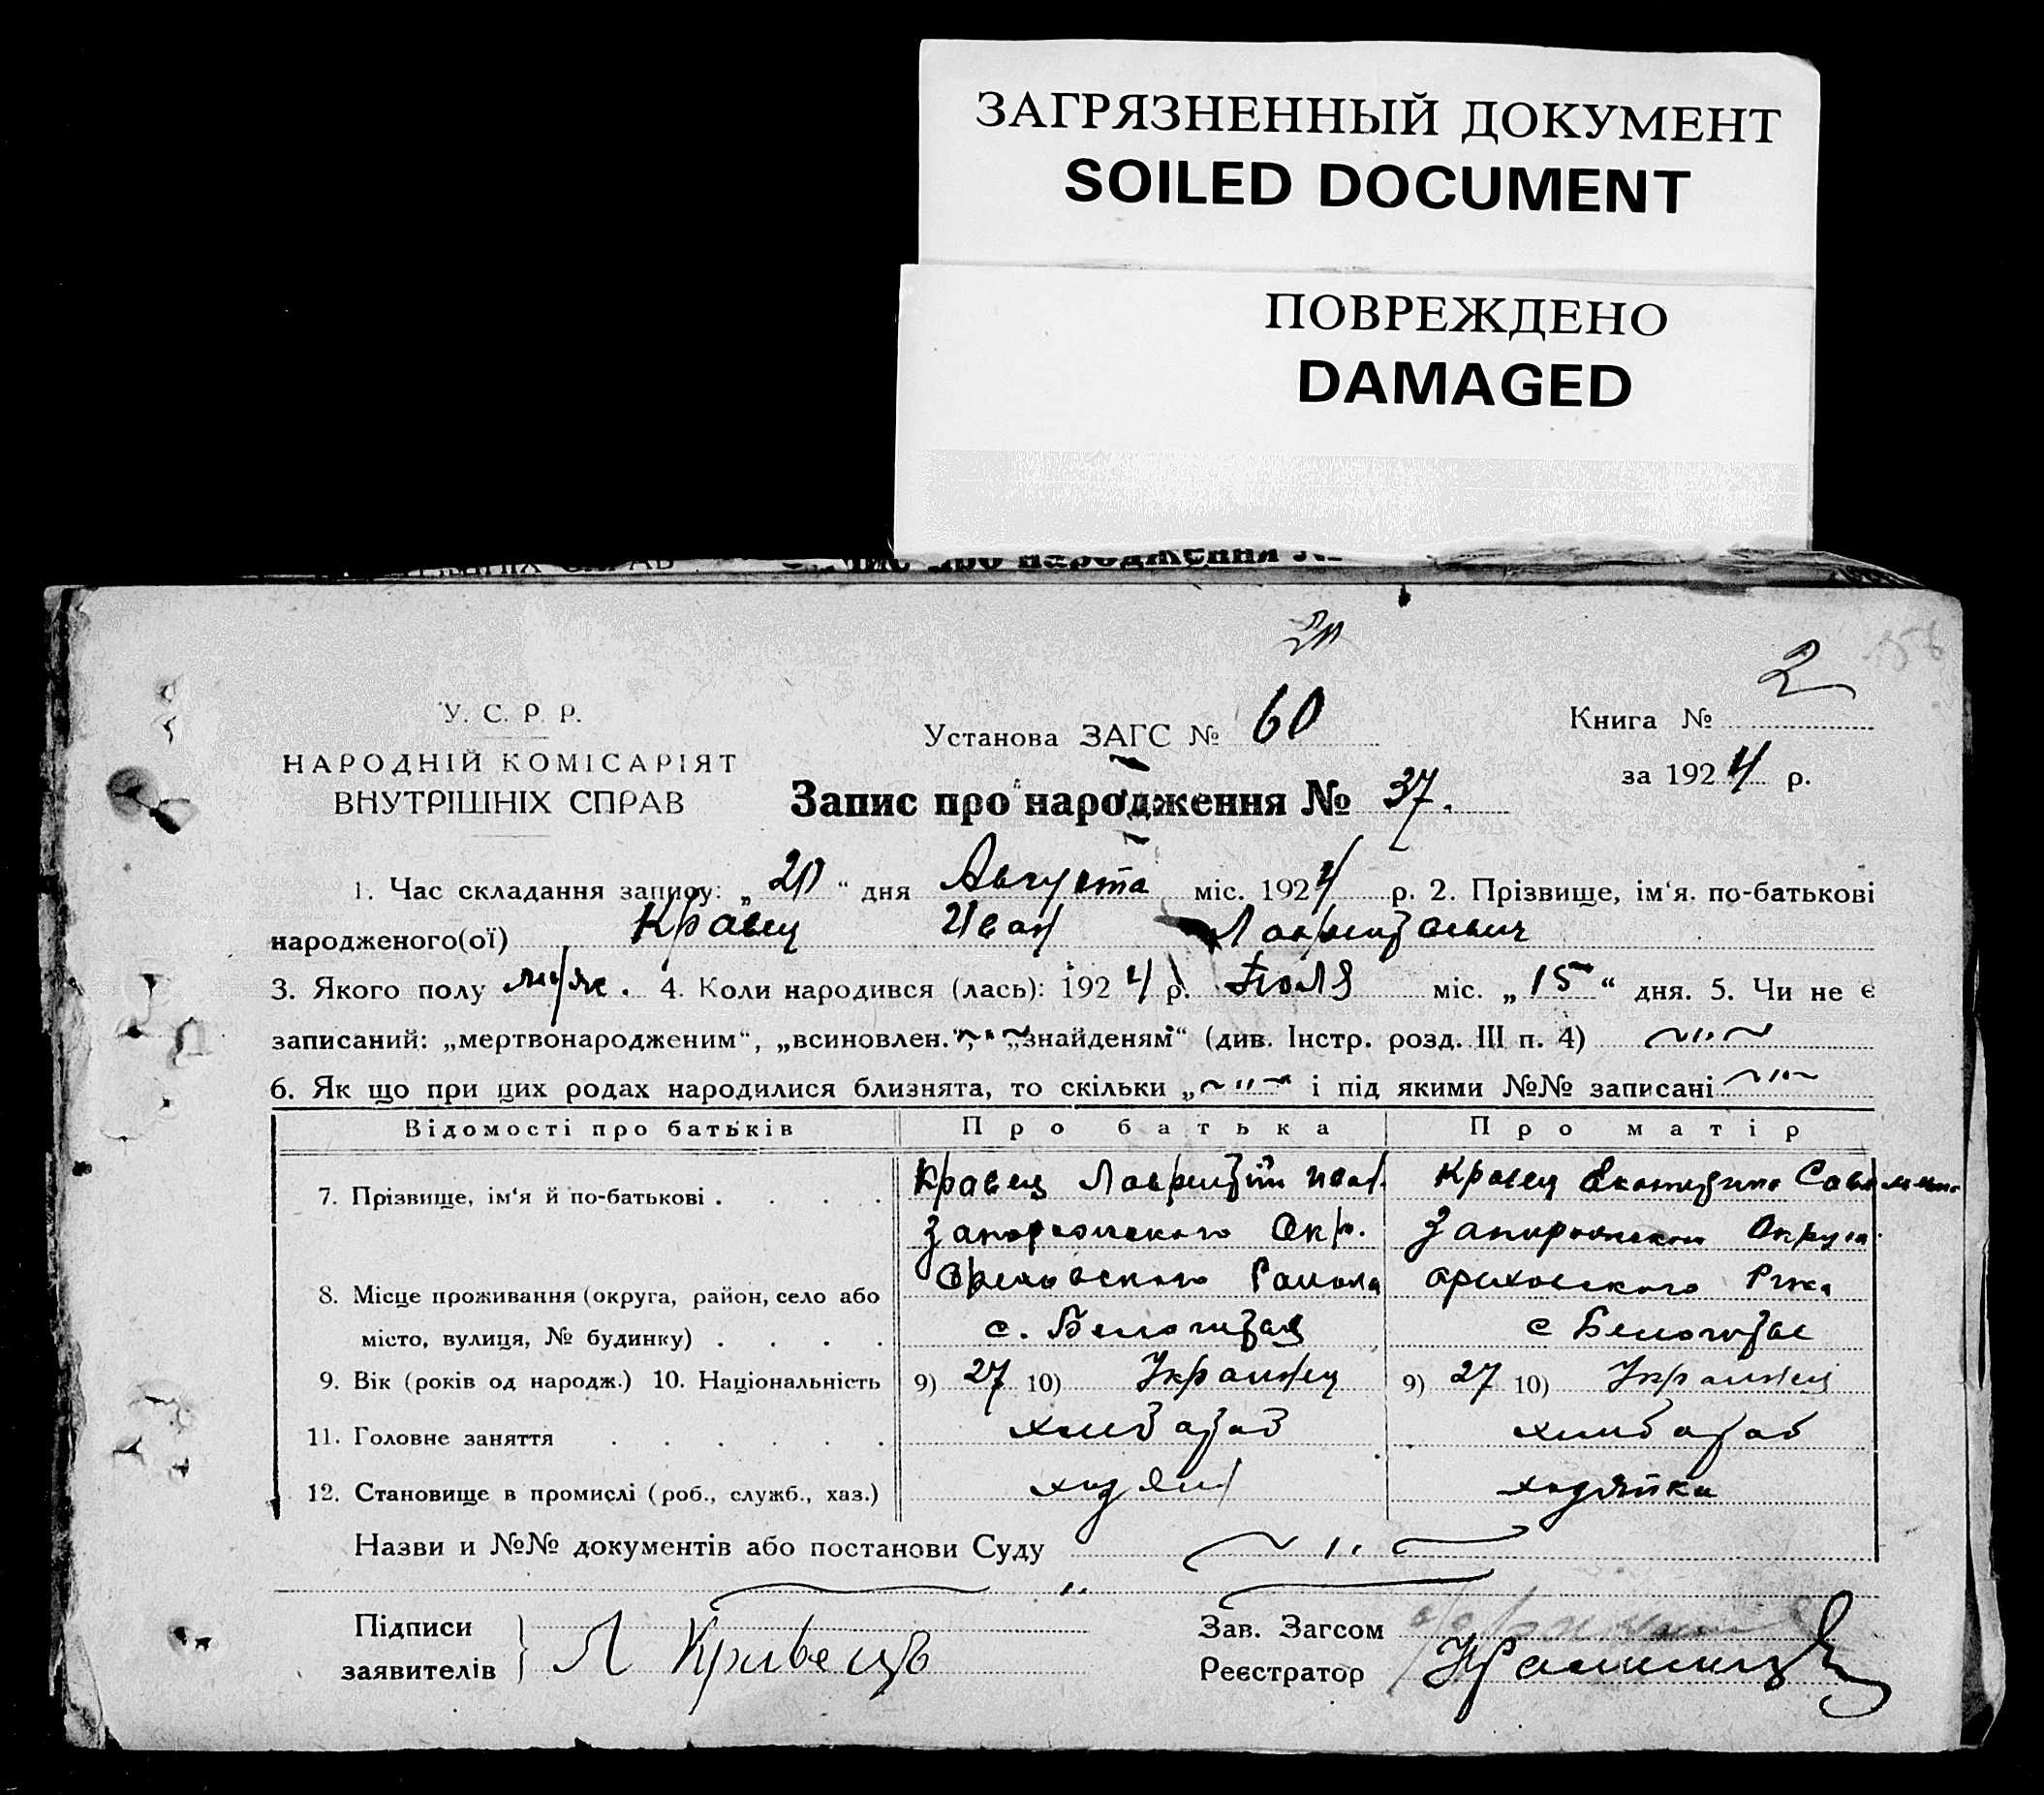 ЗАГРЯЗНЕННЫЙ ДОКУМЕНТ
SOILED DOCUMENT
ПОВРЕЖДЕНО
DAMAGED
2
У. С. Р. Р.
НАРОДНІЙ КОМІСАРІЯТ
ВНУТРІШНІХ СПРАВ
Установа ЗАГС № 60
Книга №
за 1924 р.
Запис про народження № 37.
1. Час складання запису: „20“ дня Августа міс. 1924 р. 2. Прізвище, ім'я, по-батькові
народженого(ої) Кравец Иван
3. Якого полу муж. 4. Коли народився (лась): 1924 р. міс. „15“ дня. 5. Чи не є
записаний: „мертвонародженим“, „всиновлен.“, „знайденям“ (див. Інстр. розд. III п. 4) ~"~
6. Як що при цих родах народилися близнята, то скільки „~"~“ і під якими №№ записані ~"~
Відомості про батьків Про батька Про матір
7. Прізвище, ім'я й по-батькові . . . . Кравец Кравец
Окр. Округа
8. Місце проживання (округа, район, село або Ореховского Района Ореховского
місто, вулиця, № будинку) . . . . с. с
9. Вік (років од народж.) 10. Національність 9) 27 10) Украинец 9) 27 10) Украинец
11. Головне заняття . . . . . .
12. Становище в промислі (роб., служб., хаз.)
Назви и №№ документів або постанови Суду ~"~
~"~
Підписи
заявителів } Л Кравець
Зав. Загсом
Реєстратор